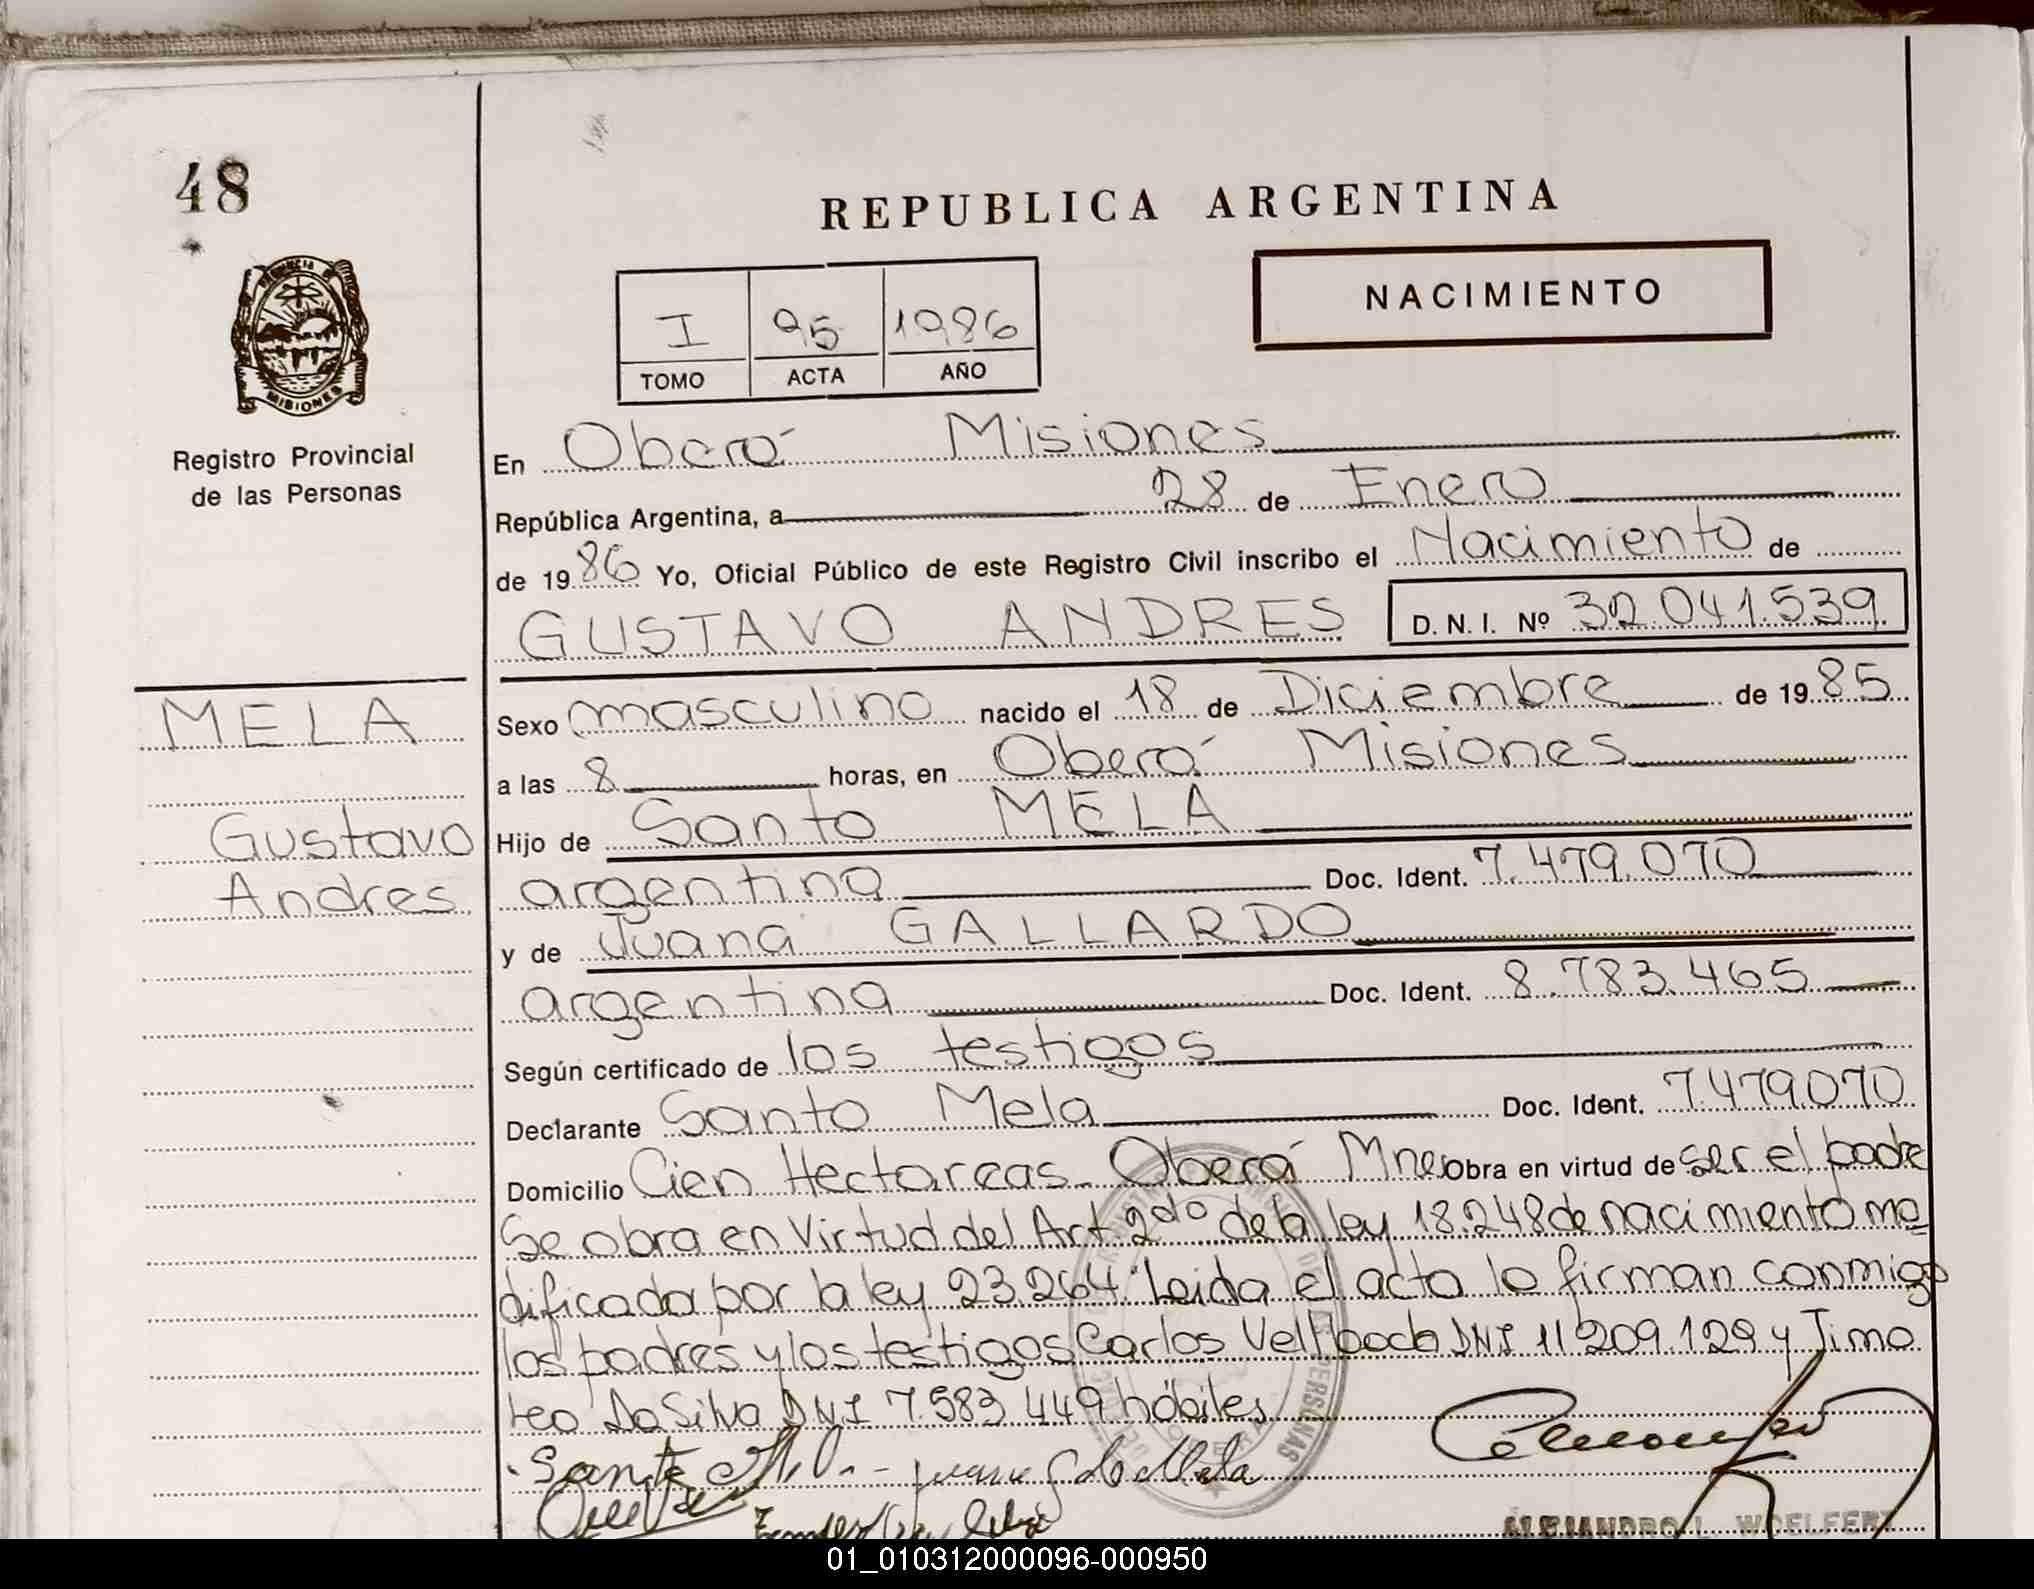 48
REPUBLICA ARGENTINA
NACIMIENTO
I 95 1986
TOMO ACTA AÑO
PROVINCIA DE
MISIONES
Registro Provincial
de las Personas
En Oberá Misiones
República Argentina, a 28 de Enero
de 1986 Yo, Oficial Público de este Registro Civil inscribo el Nacimiento de
GUSTAVO ANDRES D. N. I. Nº 32.041.539
MELA
Gustavo
Andres
Sexo masculino nacido el 18 de Diciembre de 1985
a las 8 horas, en Oberá Misiones
Hijo de Santo MELA
argentina Doc. Ident. 7.479.070
y de Juana GALLARDO
argentina Doc. Ident. 8.783.465
Según certificado de los testigos
Declarante Santo Mela Doc. Ident. 7.479.070
Domicilio Cien Hectareas. Oberá Mnes obra en virtud de ser el padre
Se obra en Virtud del Art. 2do de la ley 18.248 de nacimiento mo
dificada por la ley 23.264. Leida el acta lo firman conmigo
los padres y los testigos Carlos DNI 11.209.129 y Timo
teo Da Silva DNI 7.583.449 hábiles
ALEJANDRO L. WOELFERT
01_010312000096-000950